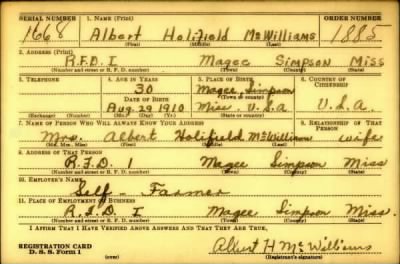 SERIAL NUMBER 1. NAME (Print) ORDER NUMBER
1668 Albert Holifield McWilliams 1885
(First) (Middle) (Last)
2. ADDRESS (Print)
R.F.D. I Magee Simpson Miss
(Number and street or R. F. D. number) (Town) (County) (State)
3. TELEPHONE 4. AGE IN YEARS 5. PLACE OF BIRTH 6. COUNTRY OF CITIZENSHIP
30 Magee, Simpson
DATE OF BIRTH (Town or county)
Aug. 29 1910 Miss. U.S.A U.S.A.
(Exchange) (Number) (Mo.) (Day) (Yr.) (State or country)
7. NAME OF PERSON WHO WILL ALWAYS KNOW YOUR ADDRESS RELATIONSHIP OF THAT PERSON
Mrs. Albert Holifield McWilliam wife
(Mr., Mrs., Miss) (First) (Middle) (Last)
8. ADDRESS OF THAT PERSON
R.F.D. 1 Magee Simpson Miss
(Number and street or R. F. D. number) (Town) (County) (State)
9. EMPLOYER'S NAME
Self - Farmer
10. PLACE OF EMPLOYMENT OR BUSINESS
R.F.D I Magee Simpson Miss.
(Number and street or R. F. D. number) (Town) (County) (State)
I AFFIRM THAT I HAVE VERIFIED ABOVE ANSWERS AND THAT THEY ARE TRUE.
REGISTRATION CARD
D. S. S. Form 1 (over)
Albert H McWilliams
(Registrant's signature)